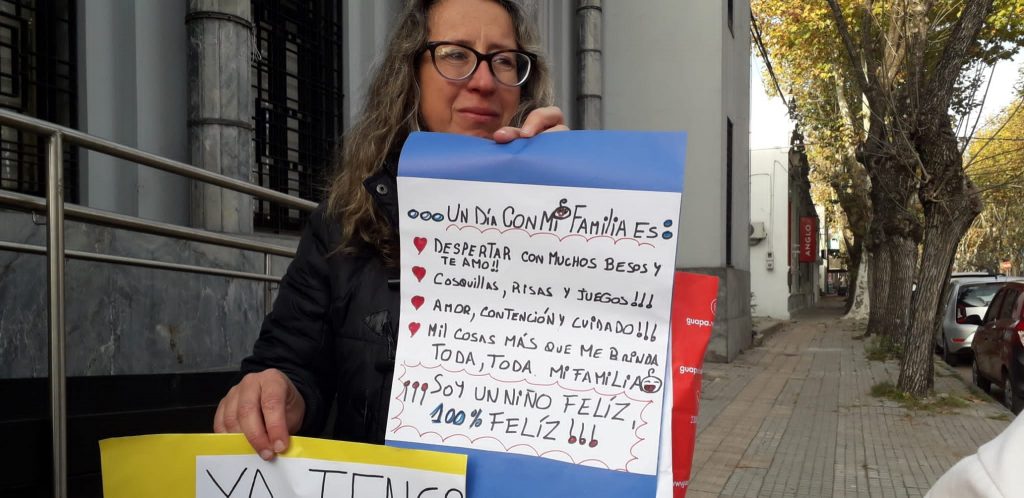 UN DÍA CON MI FAMILIA ES:
DESPERTAR CON MUCHOS BESOS Y
TE AMO!!
COSQUILLAS, RISAS Y JUEGOS!!!
AMOR, CONTENCIÓN Y CUIDADO!!!
MIL COSAS MÁS QUE ME BRINDA
TODA, TODA MI FAMILIA
¡¡¡SOY UN NIÑO FELIZ,
100% FELÍZ!!!
YA TENGO
ANGLO
guapa
guapa